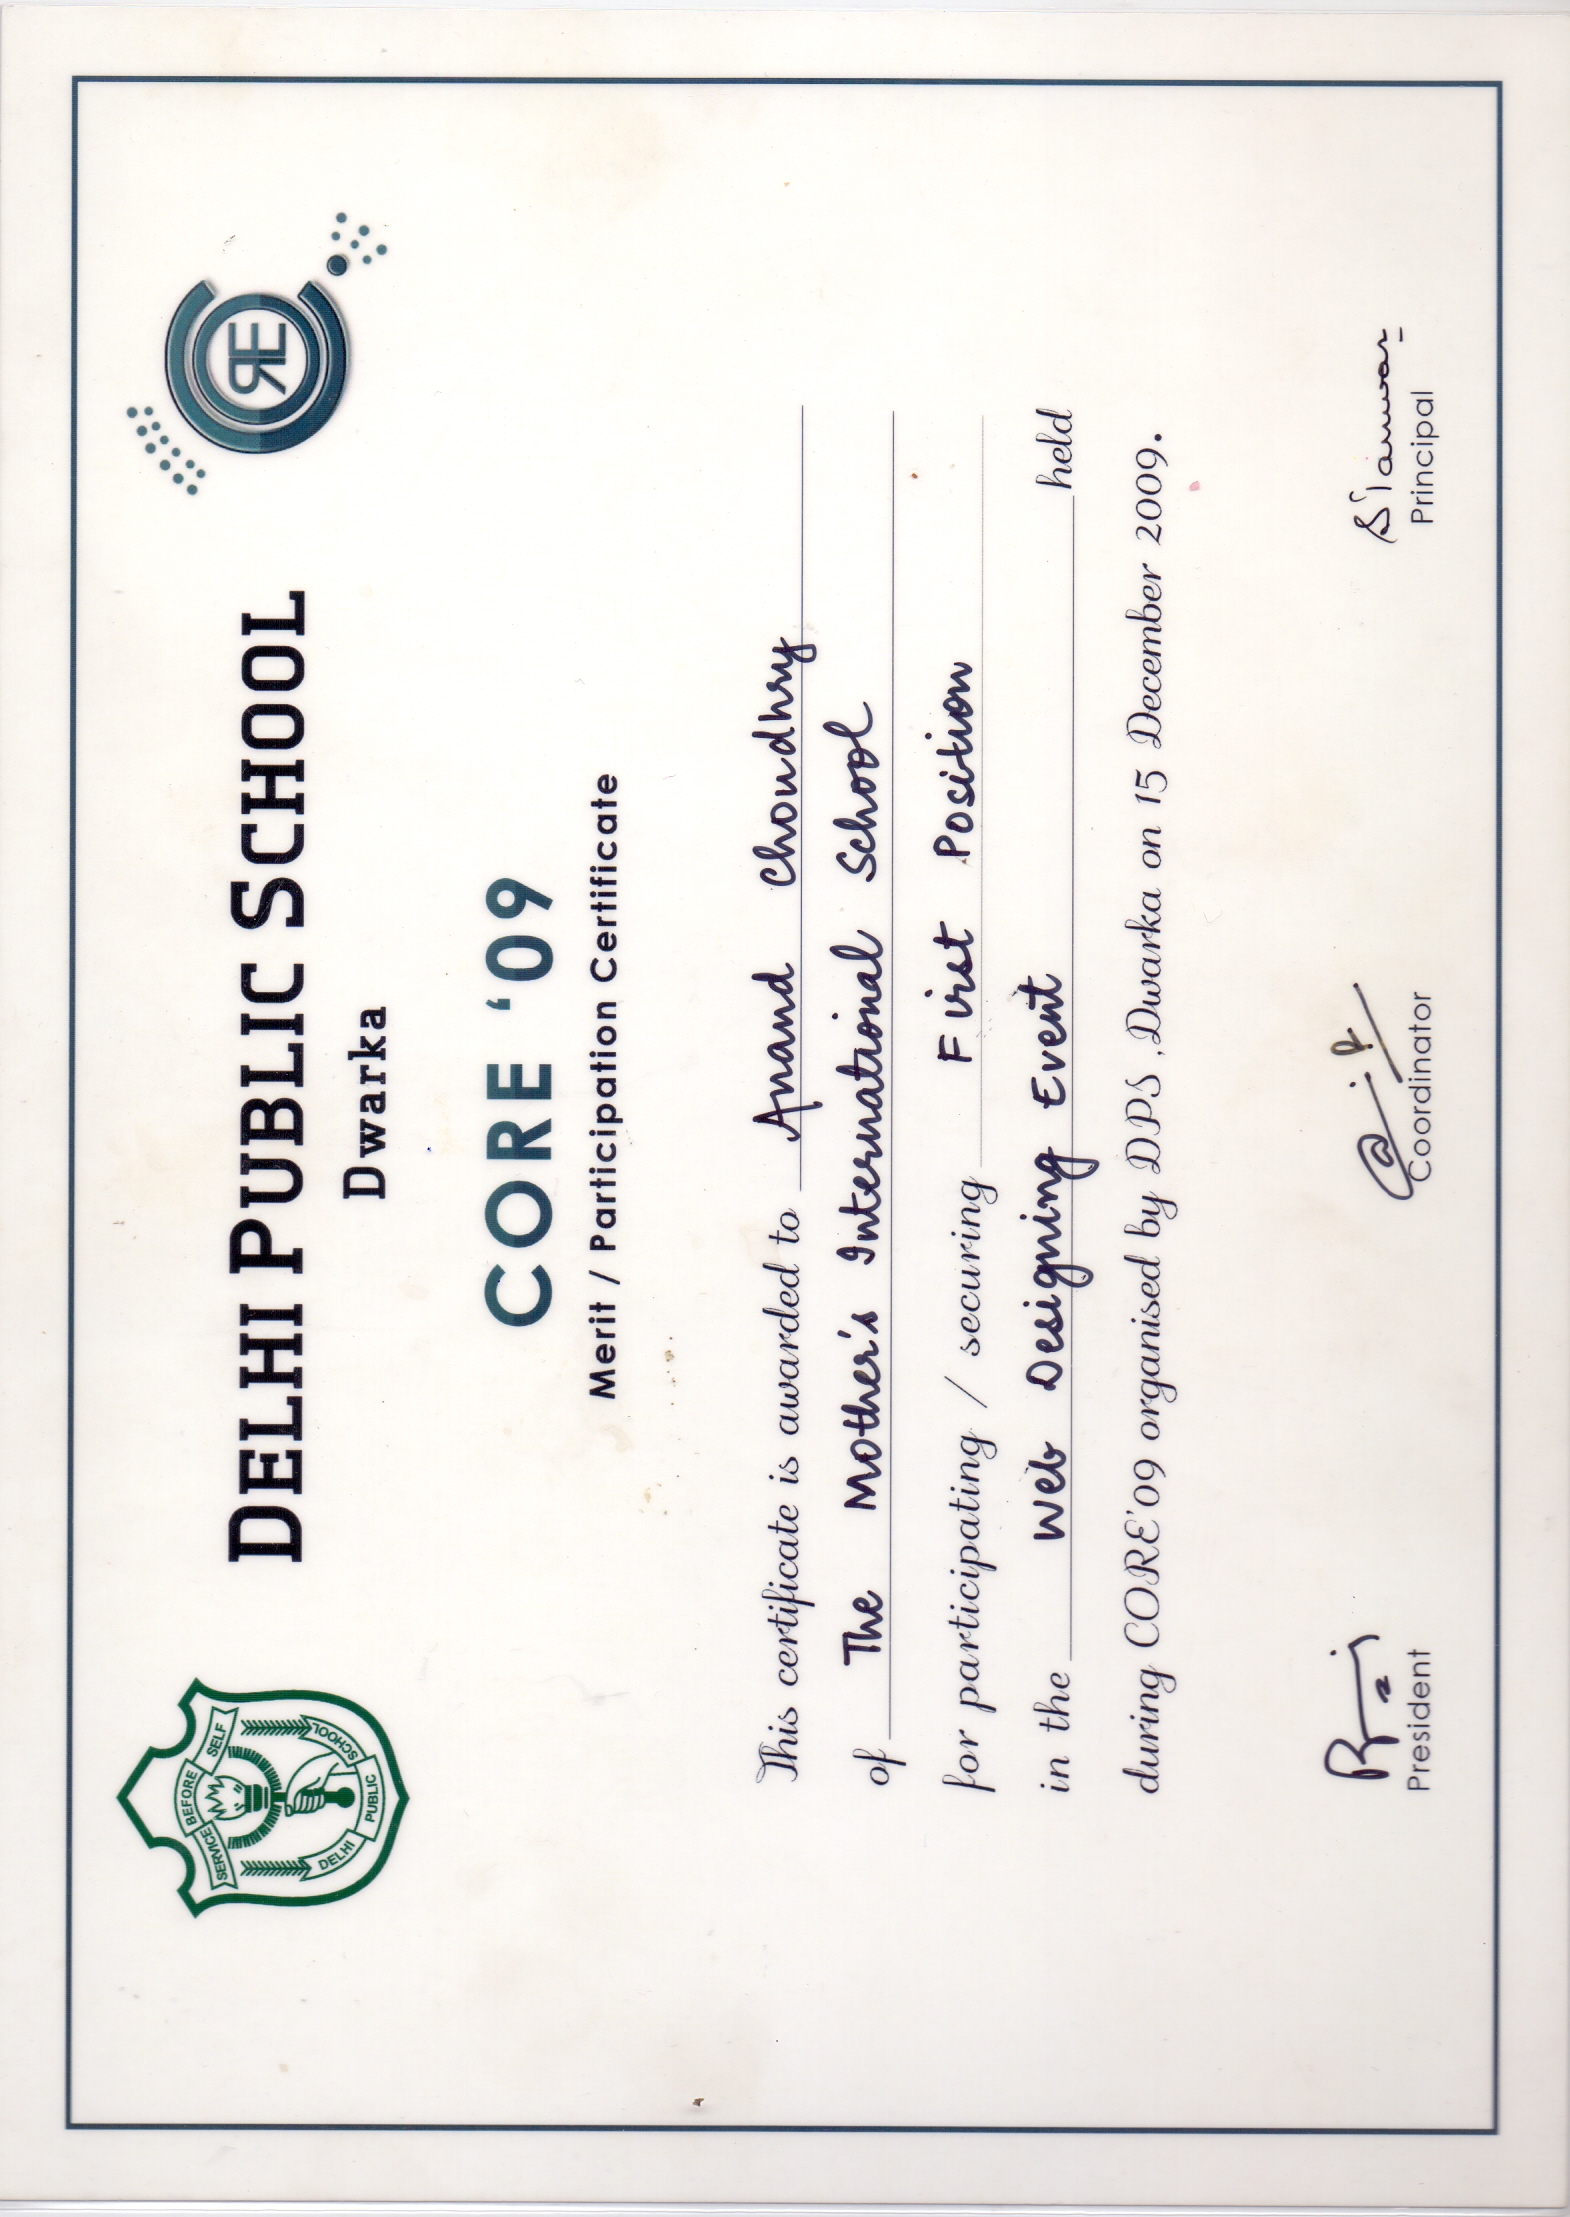 SERVICE BEFORE SELF
DELHI PUBLIC SCHOOL
DELHI PUBLIC SCHOOL
Dwarka
CORE
CORE ‘09
Merit / Participation Certificate
This certificate is awarded to Anand Choudhry
of The Mother's International School
for participating / securing First Position
in the Web Designing Event held
during CORE'09 organised by DPS ,Dwarka on 15 December 2009.
STanwar
President Coordinator Principal